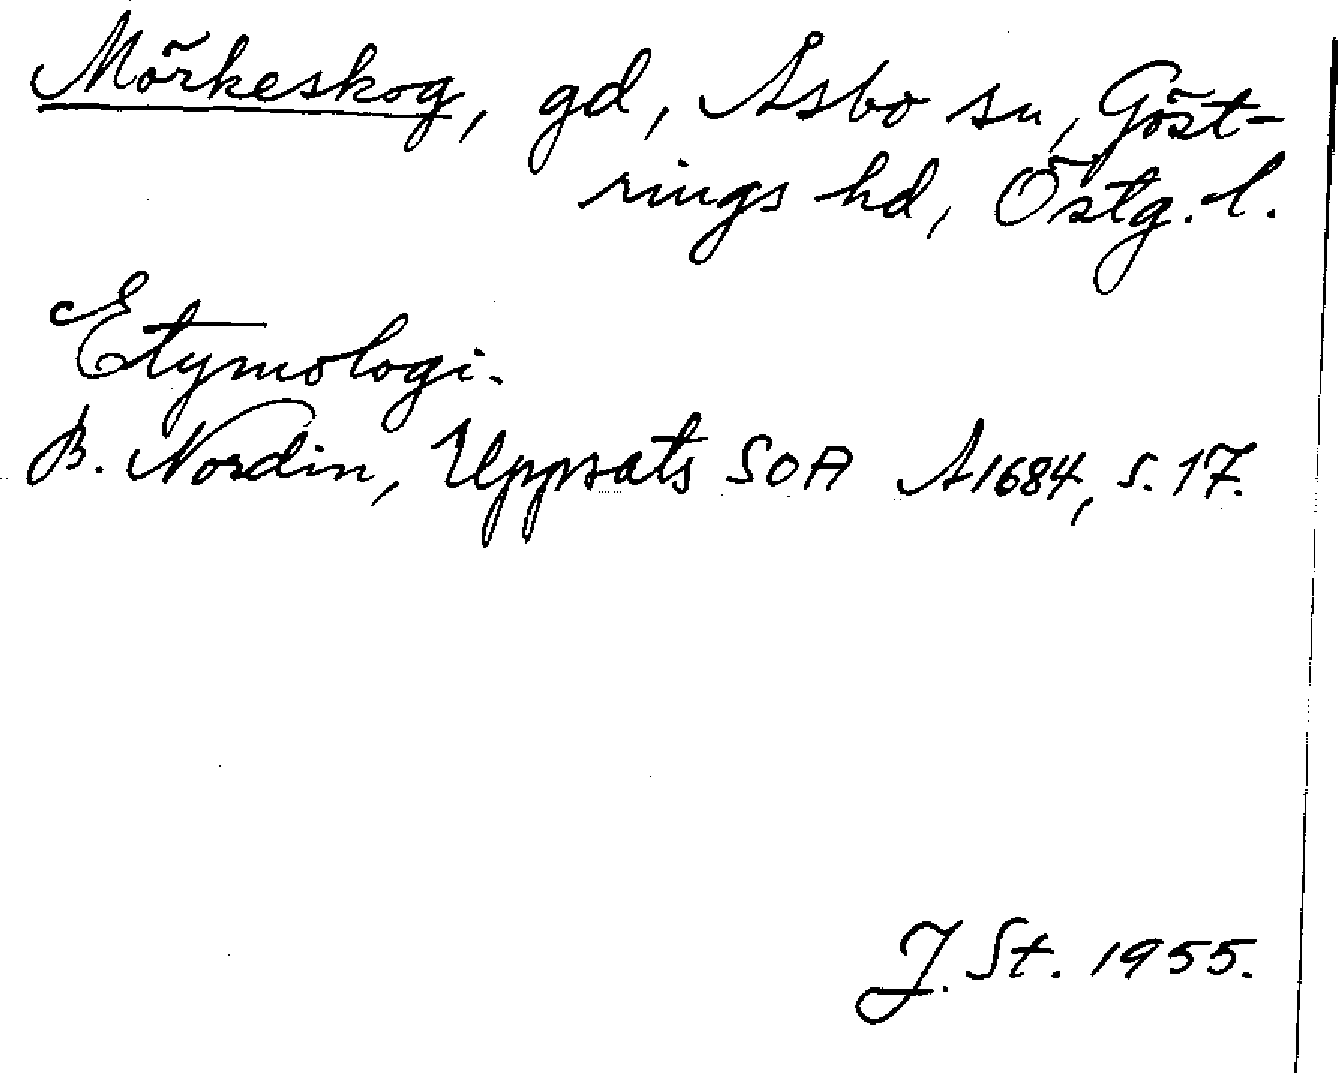 Mörkeskog, gd, Åsbo sn, Göst-
rings hd, Östg. l.
Etymologi.
B. Nordin, Uppsats SOA A1684, s. 17.
J. St. 1955.